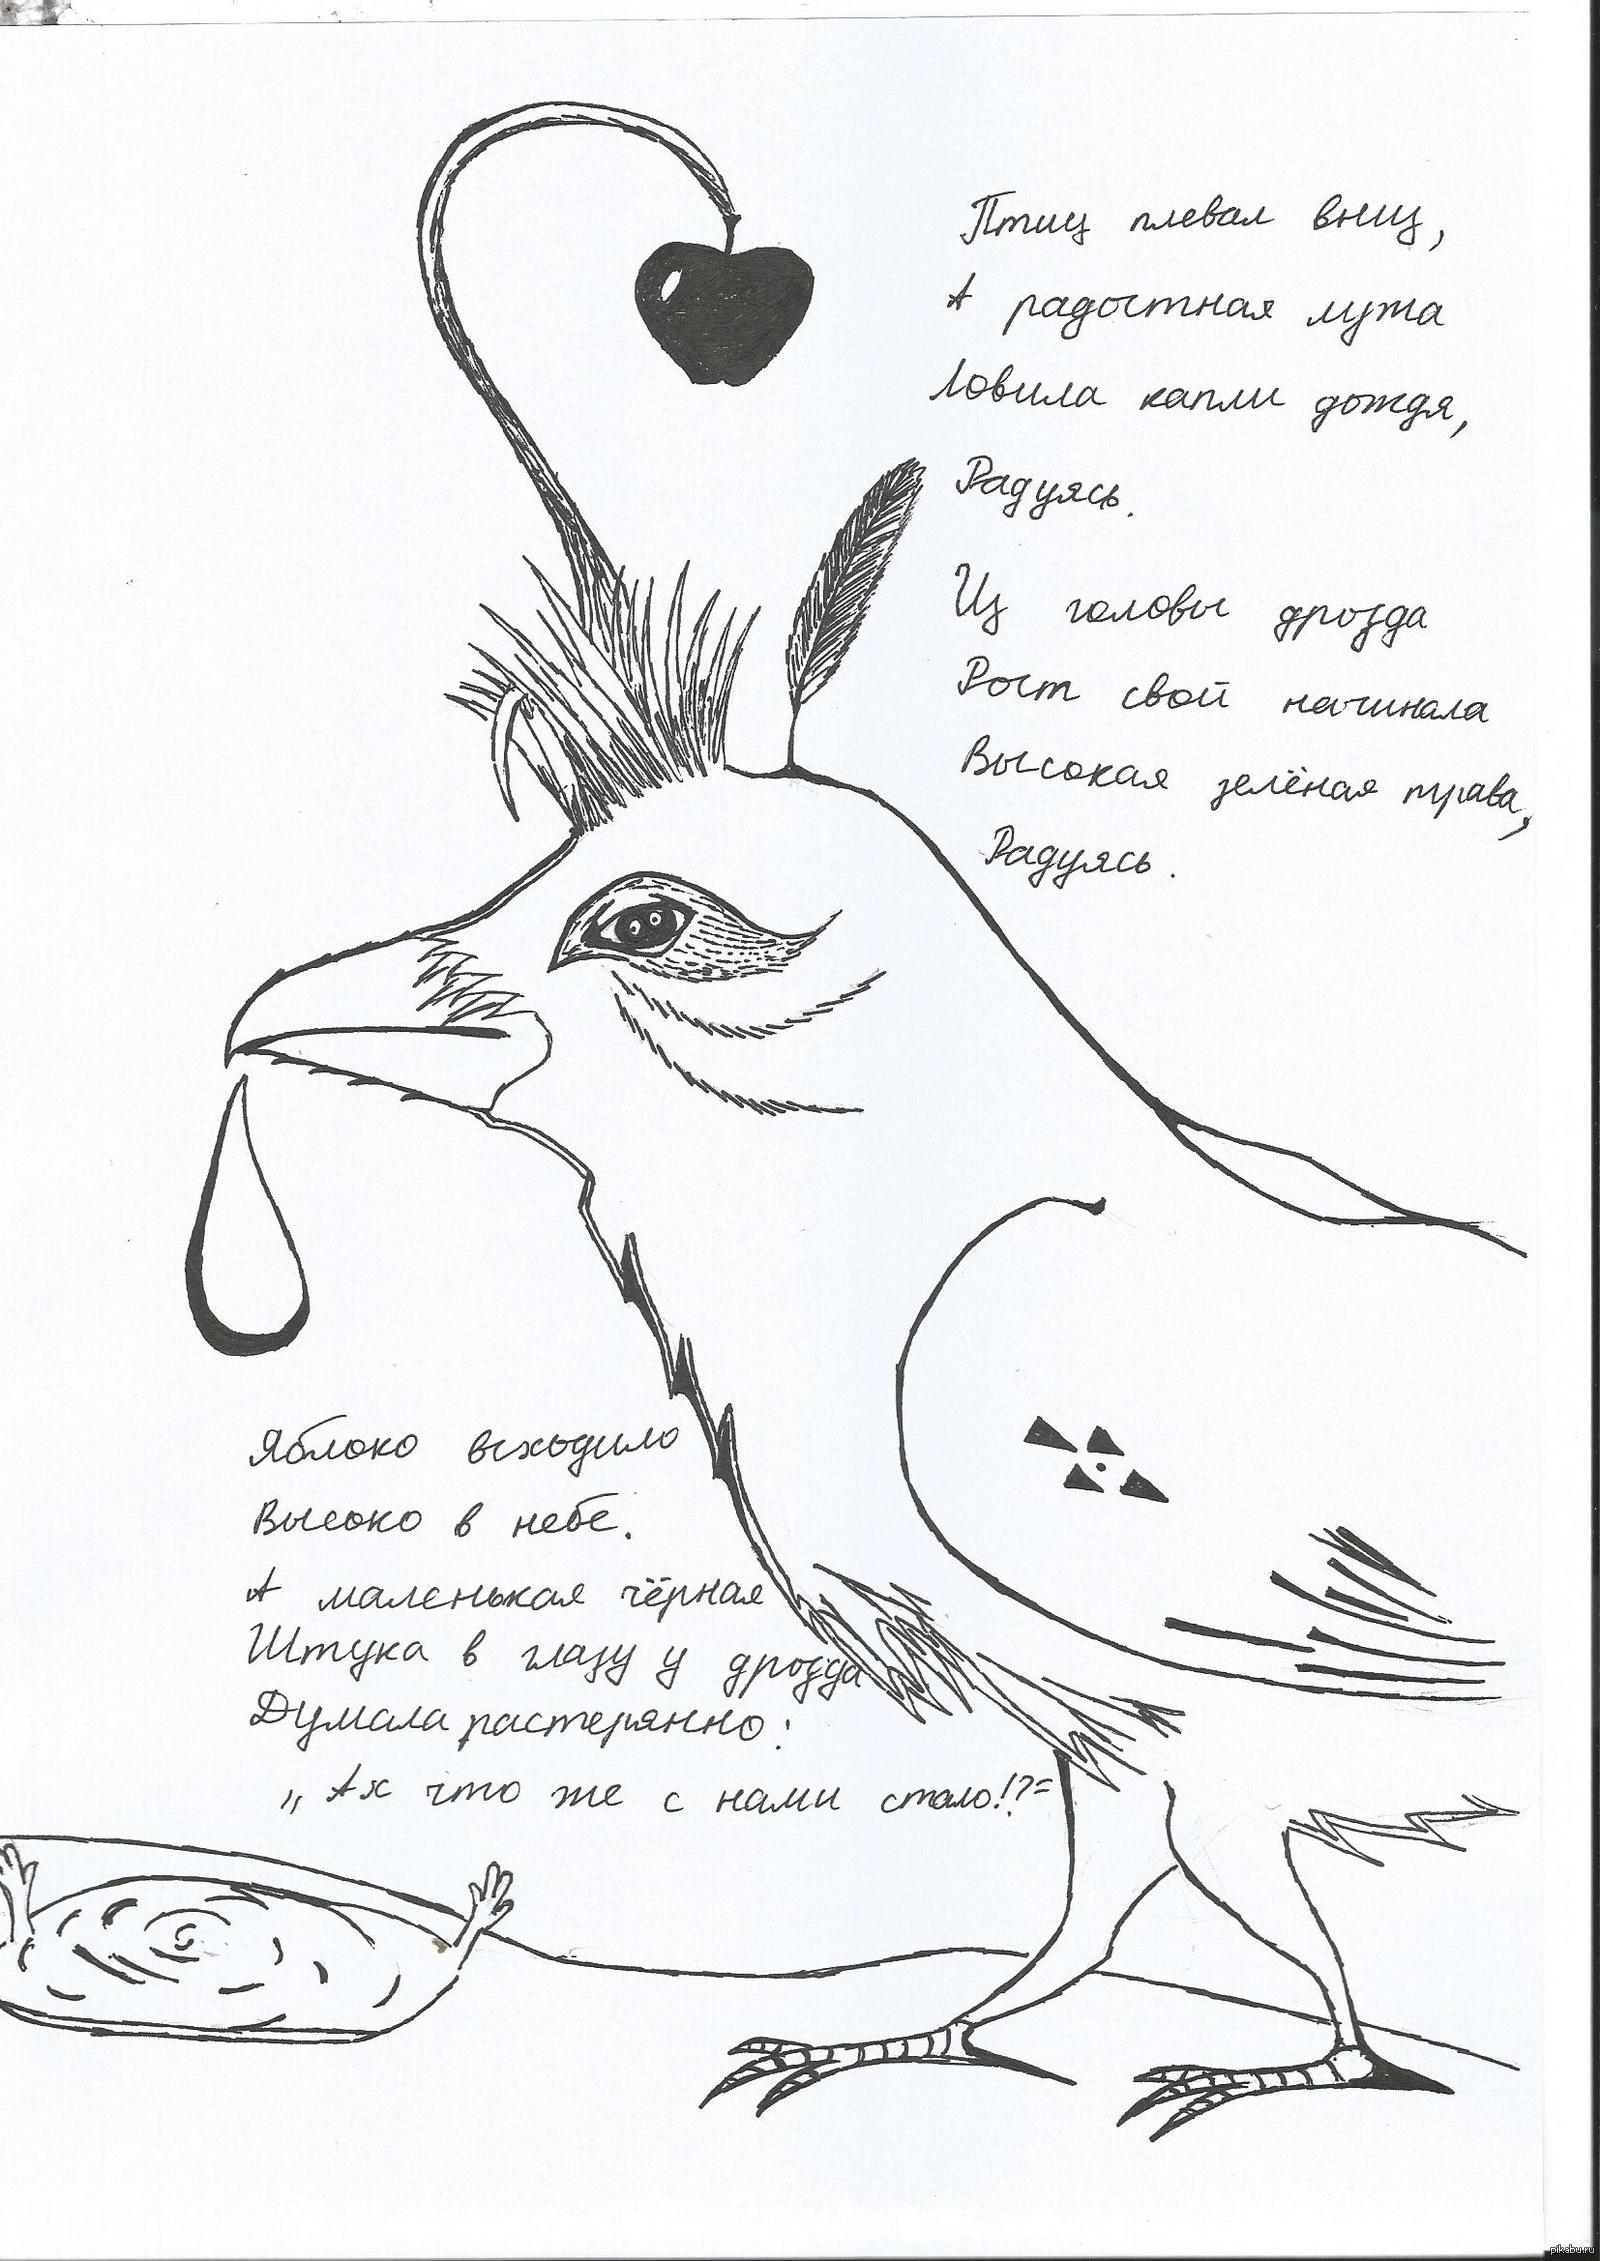 Птиц плевал вниц,
А радостная лужа
Ловила капли дождя,
Радуясь.
Из головы дрозда
Рост свой начинала
Высокая зелёная трава,
Радуясь.
Яблоко всходило
Высоко в небе.
А маленькая чёрная
Штука в глазу у дрозда
Думала растерянно:
„Ах что же с нами стало!?"
pikabu.ru